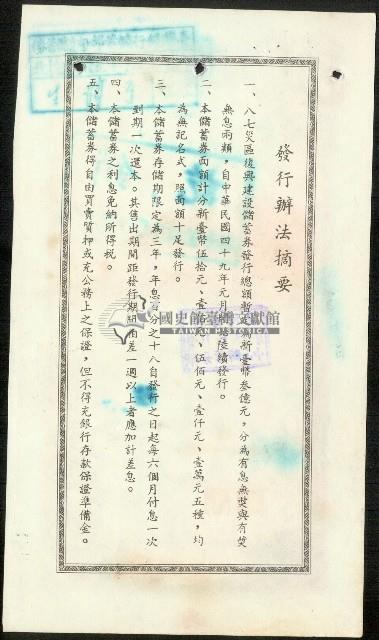 發行辦法摘要
一、八七災區復興建設儲蓄券發行總額暫定為新臺幣叁億元，分為有息無獎與有獎
無息兩類，自中華民國四十九年元月起陸續發行。
二、本儲蓄券面額計分新臺幣伍拾元、壹佰元、伍佰元、壹仟元、壹萬元五種，均
為無記名式，照面額十足發行。
三、本儲蓄券存儲期限定為三年，年息百分之十八自發行之日起每六個月付息一次
到期一次還本。其售出期間距發行期間相差一週以上者應加計差息。
四、本儲蓄券之利息免納所得稅。
五、本儲蓄券得自由買賣質押或充公務上之保證，但不得充銀行存款保證準備金。
國史館臺灣文獻館
TAIWAN HISTORICA